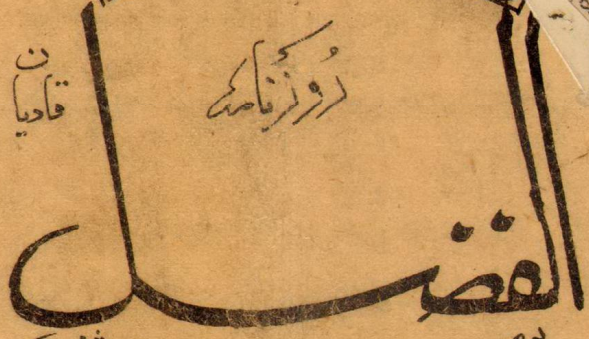 روزنامہ
قادیان
الفضل